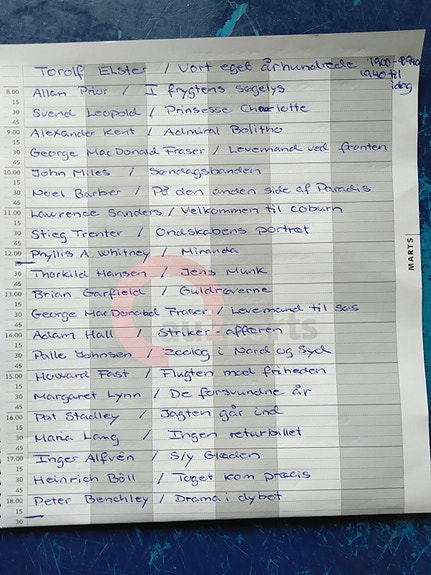 Torolf Elster / Vort eget århundrede 1900-1940
1940 til
idag
8.00 Allan Prior / I frygtens søgelys
Svend Leopold / Prinsesse Charlotte
9.00 Alexander Kent / Admiral Bolitho
George MacDonald Fraser / Levemand ved fronten
10.00 John Miles / Søndagsbanden
Noel Barber / På den anden side af Paradis
11.00 Lawrence Sanders / Velkommen til coburn
Stieg Trenter / Ondskabens portræt
12.00 Phyllis A. Whitney / Miranda
Thorkild Hansen / Jens Munk
13.00 Brian Garfield / Guldrøverne
George MacDonald Fraser / Levemand til søs
14.00 Adam Hall / Striker-affæren
Palle Johnsen / Zoolog i Nord og Syd
15.00 Howard Fast / Flugten mod friheden
Margaret Lynn / De forsvundne år
16.00 Pat Stadley / Jagten går ind
Maria Lang / Ingen returbillet
17.00 Inger Alfvén / S/Y Glæden
Heinrich Böll / Toget kom præcis
18.00 Peter Benchley / Drama i dybet
MARTS